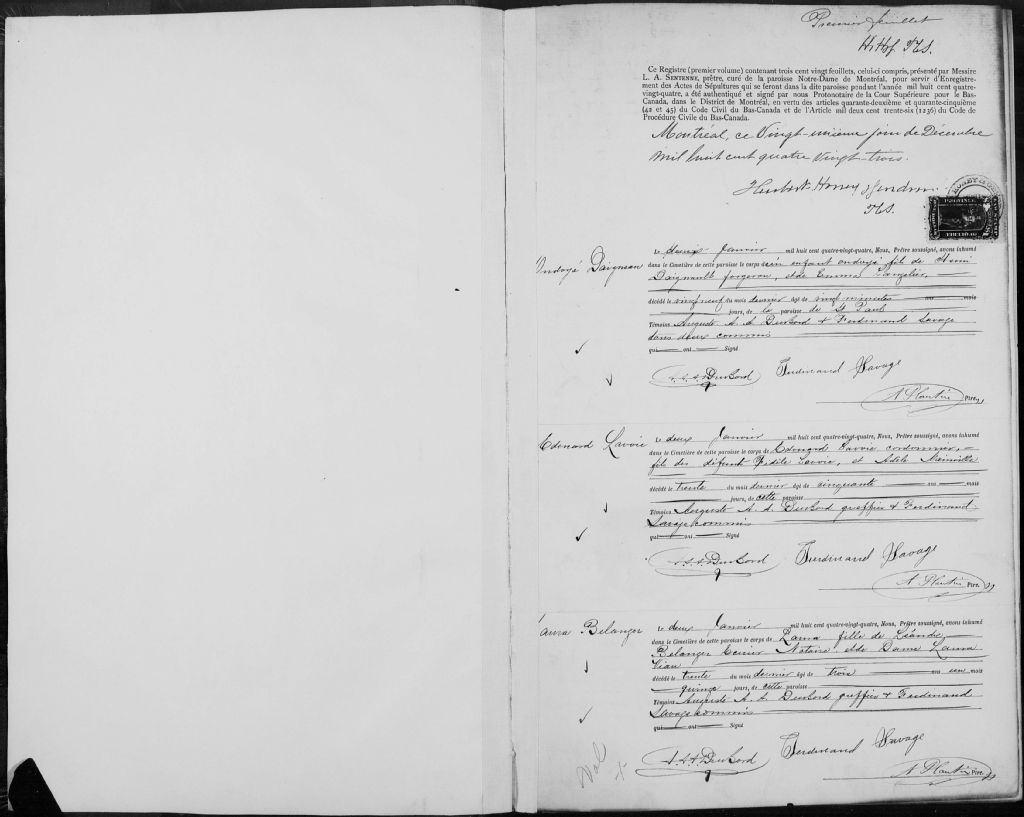 Premier feuillet
Ce Registre (premier volume) contenant trois cent vingt feuillets, celui-ci compris, présenté par Messire
L. A. SENTENNE, prêtre, curé de la paroisse Notre-Dame de Montréal, pour servir d'Enregistre-
ment des Actes de Sépultures qui se feront dans la dite paroisse pendant l'année mil huit cent quatre-
vingt-quatre, a été authentiqué et signé par nous Protonotaire de la Cour Supérieure pour le Bas-
Canada, dans le District de Montréal, en vertu des articles quarante-deuxième et quarante-cinquième
(42 et 45) du Code Civil du Bas-Canada et de l'Article mil deux cent trente-six (1236) du Code de
Procédure Civile du Bas-Canada.
Montréal, ce Vingt-unième jour de Décembre
mil huit cent quatre vingt-trois.
Ondoyé Daigneau
Le deux Janvier mil huit cent quatre-vingt-quatre, Nous, Prêtre soussigné, avons inhumé
dans le Cimetière de cette paroisse le corps d'un enfant ondoyé fils de
Daignault forgeron, et de Emma Langelier,
décédé le vingt neuf du mois dernier âgé de vingt minutes ans mois
jours, de la paroisse de St Paul
Témoins Auguste A. A. DuBord & Ferdinand Savage
tous deux commis
qui ont Signé
A.A.A. DuBord Ferdinand Savage
Ptre.
Edouard Lavoie
Le deux Janvier mil huit cent quatre-vingt-quatre, Nous, Prêtre soussigné, avons inhumé
dans le Cimetière de cette paroisse le corps de Edouard Lavoie cordonnier,
fils des défunt Fidèle Lavoie, et Adèle
décédé le trente du mois dernier âgé de cinquante ans mois
jours, de cette paroisse
Témoins Auguste A. A. DuBord greffier & Ferdinand
Savage commis
qui ont Signé
A.A.A. DuBord Ferdinand Savage
Ptre.
Belanger
Le deux Janvier mil huit cent quatre-vingt-quatre, Nous, Prêtre soussigné, avons inhumé
dans le Cimetière de cette paroisse le corps de fille de Léandre
Belanger Notaire et de Dame
Viau
décédé le trente du mois dernier âgé de trois ans un mois
quinze jours, de cette paroisse
Témoins Auguste A. A. DuBord greffier & Ferdinand
Savage commis
qui ont Signé
A.A.A. DuBord Ferdinand Savage
Ptre.